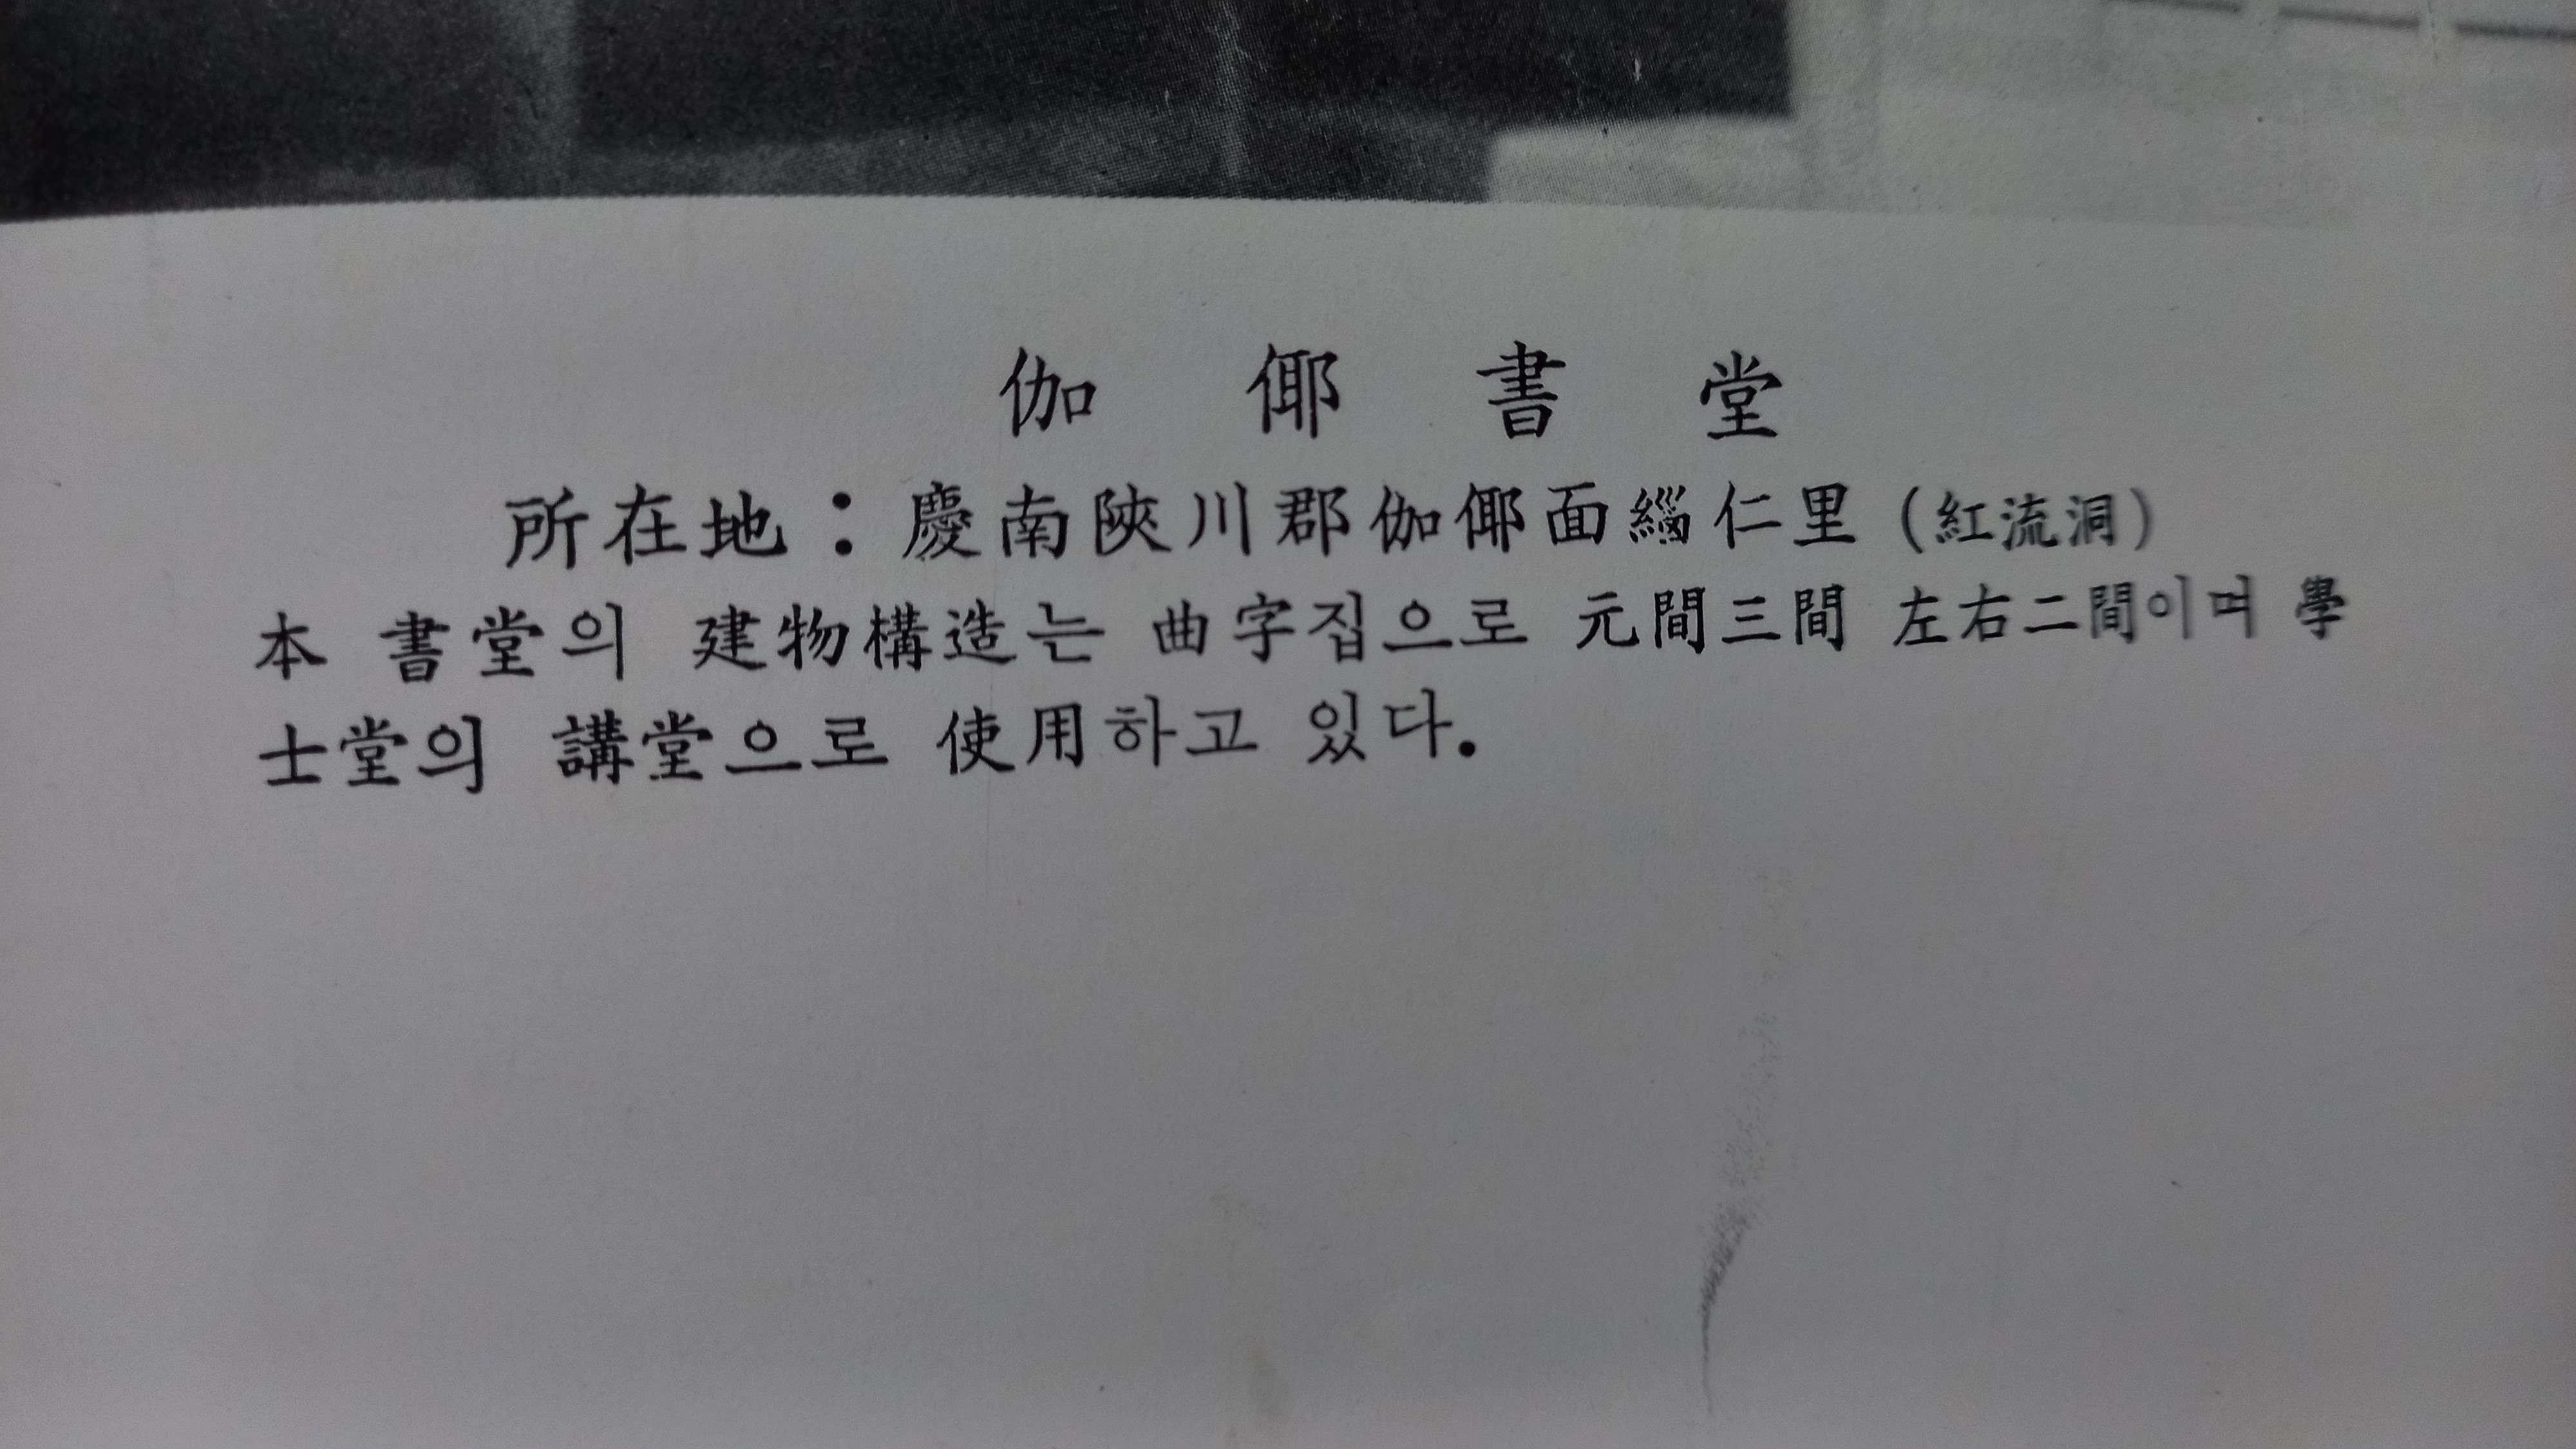 伽倻書堂
所在地：慶南陜川郡伽倻面緇仁里 (紅流洞)
本 書堂의 建物構造는 曲字집으로 元間三間 左右二間이며 學
士堂의 講堂으로 使用하고 있다.